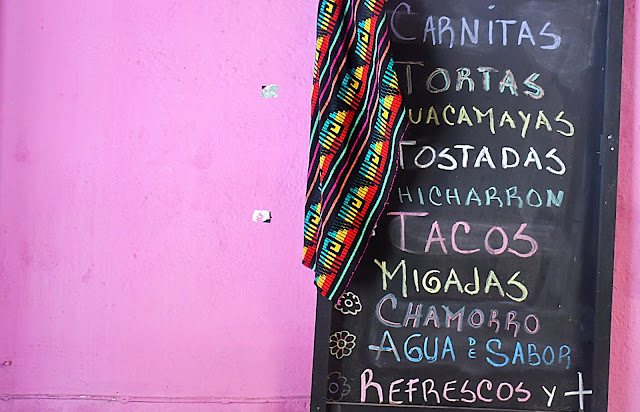 CARNITAS
TORTAS
UACAMAYAS
TOSTADAS
HICHARRON
TACOS
MIGAJAS
CHAMORRO
AGUA DE SABOR
REFRESCOS Y +